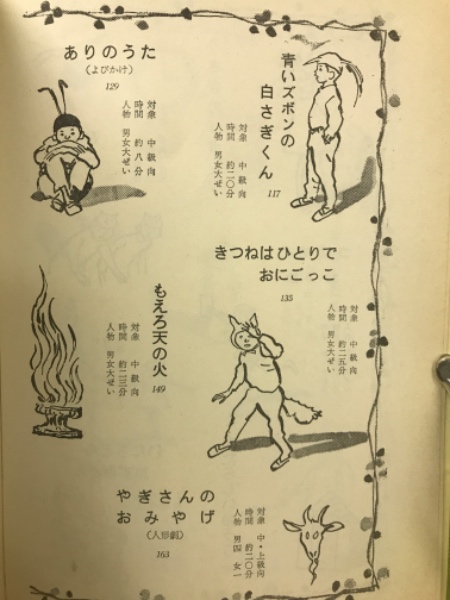 青いズボンの
白さぎくん
117
対象　中級向
時間　約二〇分
人物　男女大ぜい
ありのうた
（よびかけ）
129
対象　中級向
時間　約八分
人物　男女大ぜい
きつねはひとりで
おにごっこ
135
対象　中級向
時間　約二五分
人物　男女大ぜい
もえろ天の火
149
対象　中級向
時間　約二三分
人物　男女大ぜい
やぎさんの
おみやげ
（人形劇）
163
対象　中・上級向
時間　約二〇分
人物　男四　女一